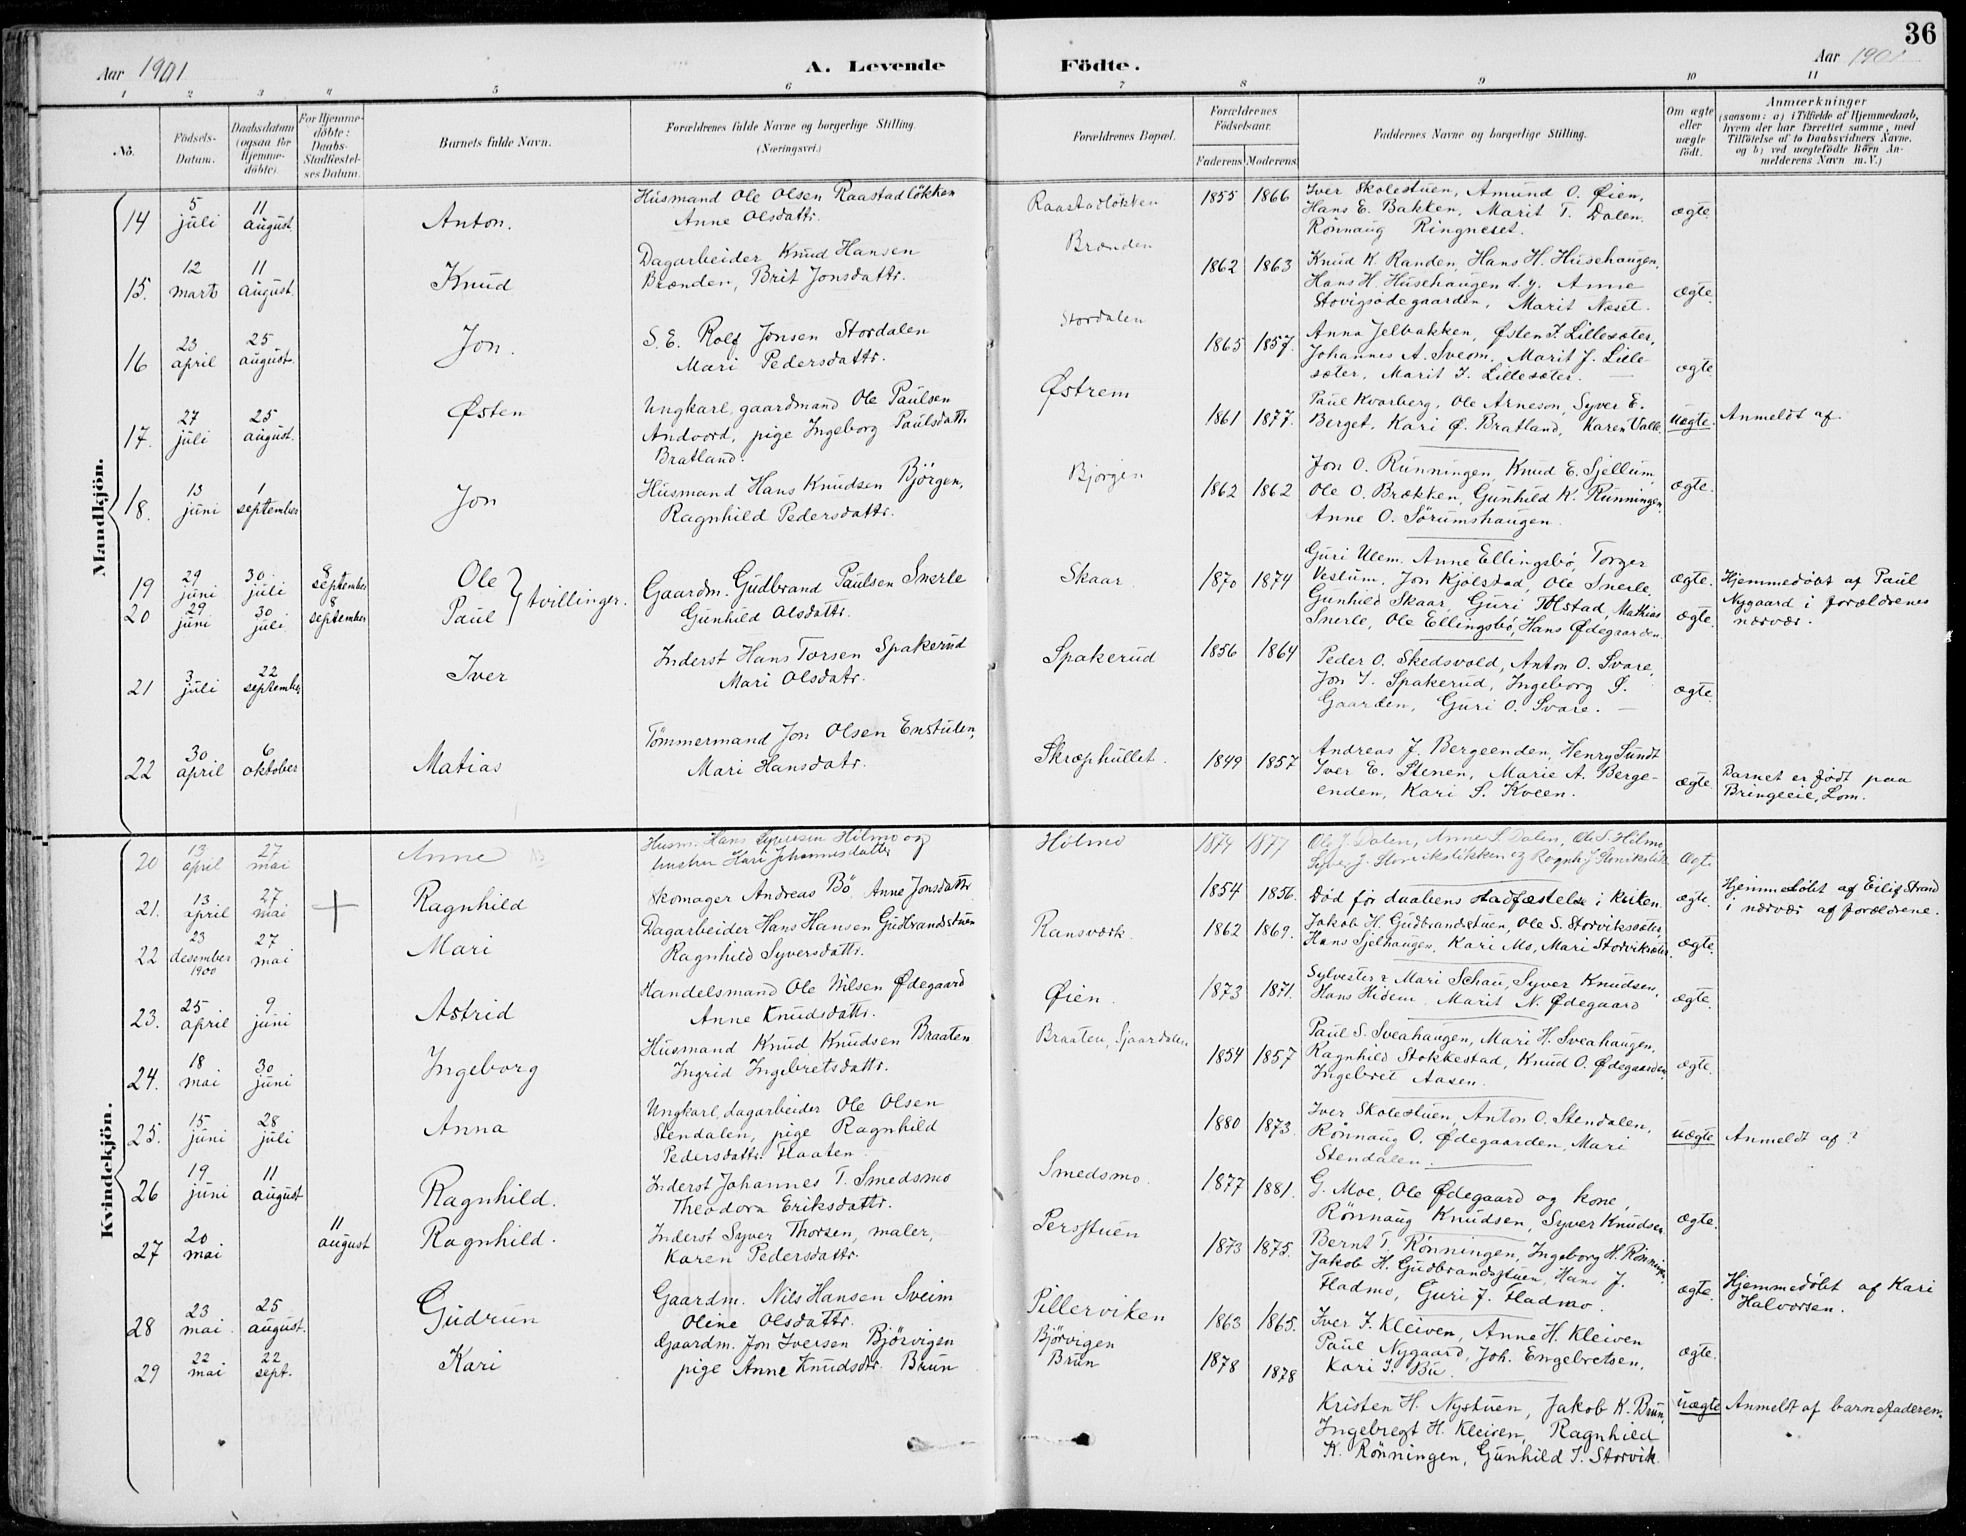 36
Aar 1901
A. Levende
Födte.
Aar 1901
1 2 3 4 5 6 7 8 9 10 11
No.
Födsels-
Datum.
Daabsdatum
(ogsaa for
Hjemme-
döbte).
For Hjemme-
döbte:
Daabs-
Stadfæstel-
ses Datum.
Barnets fulde Navn.
Forældrenes fulde Navne og borgerlige Stilling.
(Næringsvei.)
Forældrenes Bopæl.
Forældrenes
Födselsaar.
Faderens Moderens
Faddernes Navne og borgerlige Stilling.
Om ægte
eller
uægte
födt.
Anmærkninger
(saasom: a) i Tilfælde af Hjemmedaab,
hvem der har forrettet samme, med
Tilföielse af to Daabsvidners Navne.
og b) ved uægtefödte Börn An-
melderens Navn m. V.)
Mandkjön.
14
5 juli
11 august
Anton.
Husmand Ole Olsen Raastadlökken
Anne Olsdattr.
Raastadlökken
1855 1866
Iver Skolestuen, Amund O. Øien,
Hans E. Bakken, Marit T. Dalen
Rönnaug Ringneset.
ægte.
15.
12 marts
11 august
Knud
Dagarbeider Knud Hansen
Brænden, Brit Jonsdattr.
Brænden
1862 1863
Knud K. Randen, Hans H. Husehaugen,
Hans H. Husehaugen d. y. Anne
Stovigsödegaarden, Marit Neset.
ægte.
16
23 april
25 august
Jon.
S. E. Rolf Jonsen Stordalen
Mari Pedersdattr.
Stordalen
1865 1857.
Anna Jelbakken, Østen J. Lillesæter,
Johannes A. Sveom, Marit J. Lille-
sæter, Marit J. Lillesæter.
ægte.
17.
27 juli
25 august.
Østen
Ungkarl, gaardmand Ole Paulsen
Andvord, pige Ingeborg Paulsdattr.
Bratland.
Østrem
1861 1877.
Paul Kvarberg, Ole Arneson, Syver E.
Berget, Kari Ø. Bratland, Karen Valle.
uægte.
Anmeldt af.
18.
13 juni
1 september
Jon
Husmand Hans Knudsen Bjørgen,
Ragnhild Pedersdattr.
Bjørgen
1862 1862
Jon O. Runningen, Knud E. Sjellum,
Ole O. Brækken, Gunhild K. Runningen,
Anne O. Sörumshaugen.
ægte.
19
29 juni
30 juli
8 september
Ole
20
29 juni
30 juli
8 september
Paul
tvillinger.
Gaardm. Gudbrand Paulsen Snerle
Gunhild Olsdattr.
Skaar
1870 1874
Guri Ulem, Anne Ellingsbø, Torger
Veslum, Jon Kjølstad, Ole Snerle,
Gunhild Skaar, Guri Tolstad, Mathias
Snerle, Ole Ellingsbø, Hans Ødegaarden.
ægte.
ægte.
Hjemmedöbt af Paul
Nygaard i forældrenes
nærvær.
21
3 juli
22 september
Iver
Inderst Hans Torsen Spakerud
Mari Olsdatr.
Spakerud
1856 1864
Peder O. Skedsvold, Anton O. Svare,
Jon I. Spakerud, Ingeborg S.
Gaarden, Guri O. Svare.
ægte.
22
30 april
6 oktober
Matias
Tömmermand Jon Olsen Enstulen,
Mari Hansdatr.
Skræphullet.
1849 1857
Andreas J. Bergeenden, Henry Sundt
Iver E. Stenen, Marie A. Berge-
enden, Kari S. Kveen.
ægte.
Barnet er født paa
Bringeeie, Lom.
Kvindekjön.
20
13 april
27 mai
Anne
Husm. Hans Syversen Hilmo og
hustru Kari Johannesdatter
Hilmo
1874 1877
Ole J. Dalen, Anne S. Dalen, Ole S. Hilmo,
Syver J. Storvikslökken og Ragnh. J. Storviksløk
Ægt.
21.
13 april
27 mai
Ragnhild
Skomager Andreas Bö Anne Jonsdattr
1854 1856.
Död før daabens stadfæstelse i kirken
ægte.
Hjemmedöbt af Eilif Strand
i nærvær af forældrene.
22
23 desember 1900
27 mai
Mari
Dagarbeider Hans Hansen Gudbrandstuen
Ragnhild Syversdattr.
Ransværk.
1862 1869.
Jakob H. Gudbrandstuen, Ole S. Storviksæter,
Hans Sjelhaugen, Kari Mo, Mari Storviksæter.
ægte.
23.
25 april
9 juni
Astrid
Handelsmand Ole Nilsen Ødegaard
Anne Knudsdattr.
Øien.
1873 1871.
Sylvester & Mari Schau, Syver Knudsen,
Hans Hidem, Marit N. Ødegaard
ægte.
24.
18 mai
30 juni
Ingeborg
Husmand Knud Knudsen Braaten
Ingrid Ingebretsdattr.
Braaten, Sjaardalen
1854 1857
Paul S. Sveahaugen, Mari H. Sveahaugen,
Ragnhild Stokkestad, Knud O. Ødegaarden,
Ingebret Aasen.
ægte.
25.
15 juni
28 juli
Anna
Ungkarl, dagarbeider Ole Olsen
Stendalen, pige Ragnhild
Pedersdattr. Flaaten
1880 1873.
Iver Skolestuen, Anton O. Stendalen,
Rönnaug O. Ødegaarden, Mari
Stendalen.
uægte
Anmeldt af?
26
19 juni
11 august
Ragnhild.
Inderst Johannes T. Smedsmo
Theodora Eriksdattr.
Smedsmo.
1877 1881.
G. Moe, Ole Ødegaard og kone,
Rönnaug Knudsen, Syver Knudsen
ægte.
27
20 mai
11 august
Ragnhild.
Inderst Syver Thorsen, maler,
Karen Pedersdattr.
Persstuen
1873 1875.
Bernt T. Rönningen, Ingeborg H. Rönningen,
Jakob H. Gudbrandstuen, Hans J.
Fladmo, Guri J. Fladmo.
ægte.
Hjemmedöbt af Kari
Halvorsen.
28
23 mai
25 august.
Gudrun
Gaardm. Nils Hansen Sveim
Oline Olsdattr.
Pillerviken
1863 1865.
Iver J. Kleiven, Anne H. Kleiven
Paul Nygaard, Joh. Engebretsen,
Kari I. Bu.
ægte.
29
22 mai
22 sept.
Kari
Gaardm. Jon Iversen Bjørvigen
pige Anne Knudsdr. Brun
Bjørvigen
Brun
1878 1878
Kristen H. Nystuen, Jakob K. Brun,
Ingebregt H. Kleiven, Ragnhild
K. Rönningen, Gunhild J. Storvik.
uægte
Anmeldt af barnefaderen.